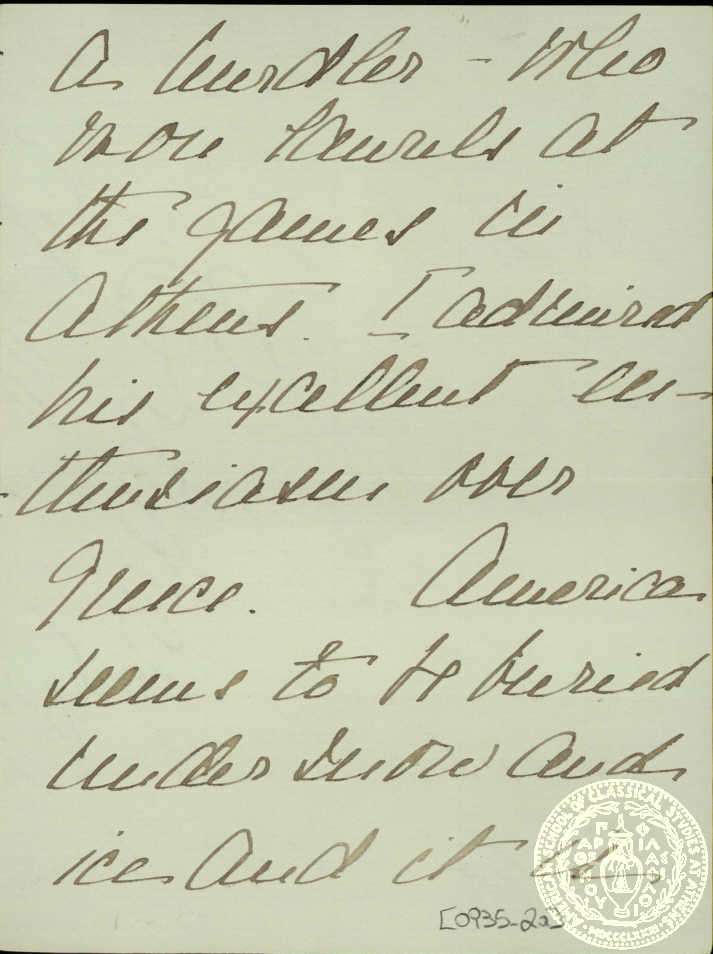 a hurdler - who
won laurels at
the games in
Athens. I admired
his excellent en-
thusiasm over
Greece. America
seems to be buried
under snow and
ice and it
[0935-2a]
AMERICAN SCHOOL OF CLASSICAL STUDIES AT ATHENS
MDCCCLXXXI